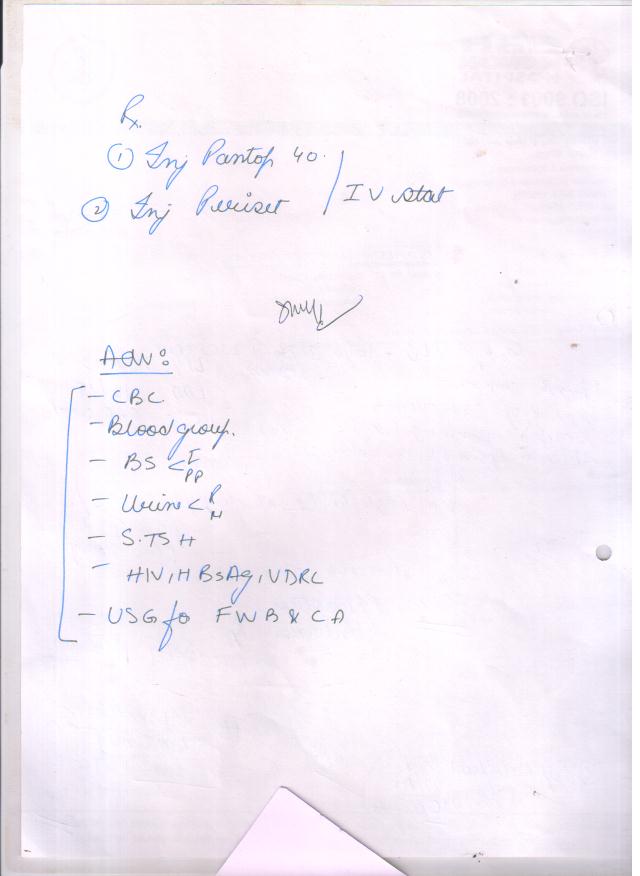 Rx.
① Inj Pantop 40.
② Inj Periset
IV stat
Adv:
- CBC
- Blood group.
- BS < F PP
- Urine < R M
- S.TSH
- HIV, HBsAg, VDRL
- USG fo FWB & CA